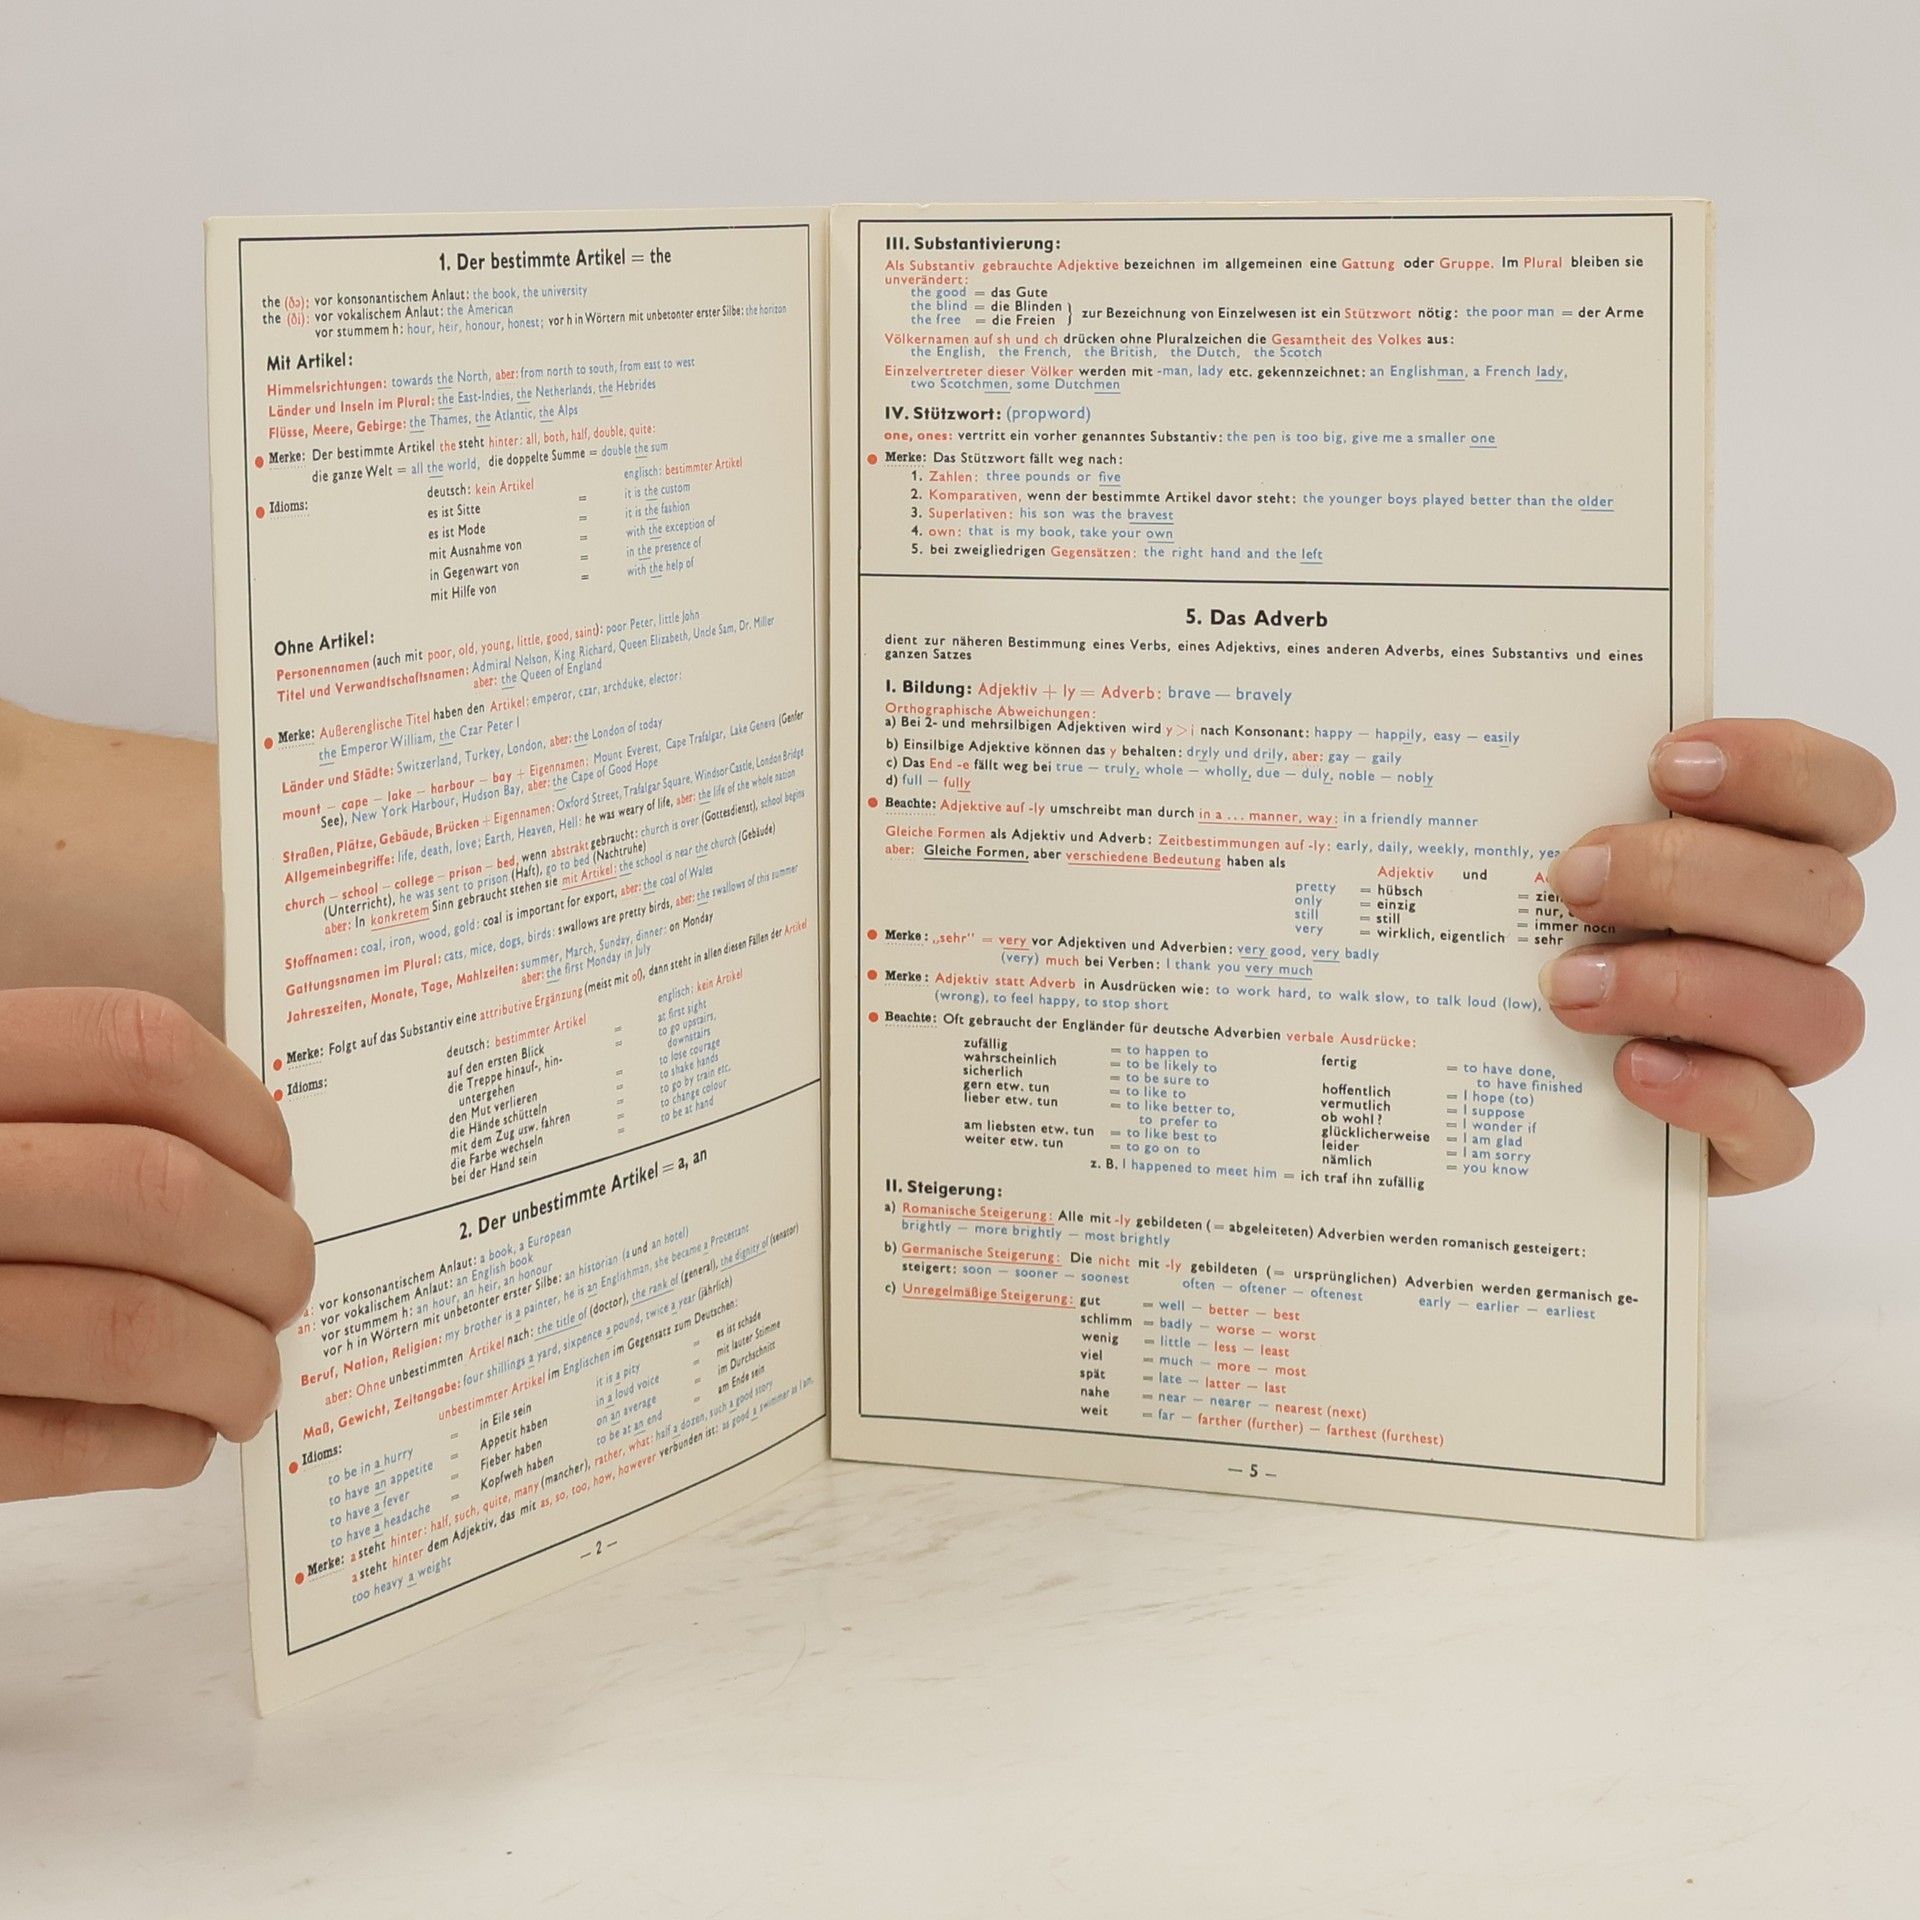 1. Der bestimmte Artikel = the
the (ðə): vor konsonantischem Anlaut: the book, the university
the (ði): vor vokalischem Anlaut: the American
vor stummem h: hour, heir, honour, honest; vor h in Wörtern mit unbetonter erster Silbe: the horizon
Mit Artikel:
Himmelsrichtungen: towards the North, aber: from north to south, from east to west
Länder und Inseln im Plural: the East-Indies, the Netherlands, the Hebrides
Flüsse, Meere, Gebirge: the Thames, the Atlantic, the Alps
Merke: Der bestimmte Artikel the steht hinter: all, both, half, double, quite:
die ganze Welt = all the world, die doppelte Summe = double the sum
Idioms: deutsch: kein Artikel englisch: bestimmter Artikel
es ist Sitte = it is the custom
es ist Mode = it is the fashion
mit Ausnahme von = with the exception of
in Gegenwart von = in the presence of
mit Hilfe von = with the help of
Ohne Artikel:
Personennamen (auch mit poor, old, young, little, good, saint): poor Peter, little John
Titel und Verwandtschaftsnamen: Admiral Nelson, King Richard, Queen Elizabeth, Uncle Sam, Dr. Miller
aber: the Queen of England
Merke: Außerenglische Titel haben den Artikel: emperor, czar, archduke, elector:
the Emperor William, the Czar Peter I
Länder und Städte: Switzerland, Turkey, London, aber: the London of today
mount – cape – lake – harbour – bay + Eigennamen: Mount Everest, Cape Trafalgar, Lake Geneva (Genfer
See), New York Harbour, Hudson Bay, aber: the Cape of Good Hope
Straßen, Plätze, Gebäude, Brücken + Eigennamen: Oxford Street, Trafalgar Square, Windsor Castle, London Bridge
Allgemeinbegriffe: life, death, love; Earth, Heaven, Hell: he was weary of life, aber: the life of the whole nation
church – school – college – prison – bed, wenn abstrakt gebraucht: church is over (Gottesdienst), school begins
(Unterricht), he was sent to prison (Haft), go to bed (Nachtruhe)
aber: In konkretem Sinn gebraucht stehen sie mit Artikel: the school is near the church (Gebäude)
Stoffnamen: coal, iron, wood, gold: coal is important for export, aber: the coal of Wales
Gattungsnamen im Plural: cats, mice, dogs, birds: swallows are pretty birds, aber: the swallows of this summer
Jahreszeiten, Monate, Tage, Mahlzeiten: summer, March, Sunday, dinner: on Monday
aber: the first Monday in July
Merke: Folgt auf das Substantiv eine attributive Ergänzung (meist mit of), dann steht in allen diesen Fällen der Artikel
Idioms: deutsch: bestimmter Artikel englisch: kein Artikel
auf den ersten Blick = at first sight
die Treppe hinauf-, hin- = to go upstairs,
untergehen downstairs
den Mut verlieren = to lose courage
die Hände schütteln = to shake hands
mit dem Zug usw. fahren = to go by train etc.
die Farbe wechseln = to change colour
bei der Hand sein = to be at hand
2. Der unbestimmte Artikel = a, an
a: vor konsonantischem Anlaut: a book, a European
an: vor vokalischem Anlaut: an English book
vor stummem h: an hour, an heir, an honour
vor h in Wörtern mit unbetonter erster Silbe: an historian (a und an hotel)
Beruf, Nation, Religion: my brother is a painter, he is an Englishman, she became a Protestant
aber: Ohne unbestimmten Artikel nach: the title of (doctor), the rank of (general), the dignity of (senator)
Maß, Gewicht, Zeitangabe: four shillings a yard, sixpence a pound, twice a year (jährlich)
Idioms: unbestimmter Artikel im Englischen im Gegensatz zum Deutschen:
to be in a hurry = in Eile sein it is a pity = es ist schade
to have an appetite = Appetit haben in a loud voice = mit lauter Stimme
to have a fever = Fieber haben on an average = im Durchschnitt
to have a headache = Kopfweh haben to be at an end = am Ende sein
Merke: a steht hinter: half, such, quite, many (mancher), rather, what: half a dozen, such a good story
a steht hinter dem Adjektiv, das mit as, so, too, how, however verbunden ist: as good a swimmer as I am,
too heavy a weight
– 2 –
III. Substantivierung:
Als Substantiv gebrauchte Adjektive bezeichnen im allgemeinen eine Gattung oder Gruppe. Im Plural bleiben sie
unverändert:
the good = das Gute
the blind = die Blinden
the free = die Freien } zur Bezeichnung von Einzelwesen ist ein Stützwort nötig: the poor man = der Arme
Völkernamen auf sh und ch drücken ohne Pluralzeichen die Gesamtheit des Volkes aus:
the English, the French, the British, the Dutch, the Scotch
Einzelvertreter dieser Völker werden mit -man, lady etc. gekennzeichnet: an Englishman, a French lady,
two Scotchmen, some Dutchmen
IV. Stützwort: (propword)
one, ones: vertritt ein vorher genanntes Substantiv: the pen is too big, give me a smaller one
Merke: Das Stützwort fällt weg nach:
1. Zahlen: three pounds or five
2. Komparativen, wenn der bestimmte Artikel davor steht: the younger boys played better than the older
3. Superlativen: his son was the bravest
4. own: that is my book, take your own
5. bei zweigliedrigen Gegensätzen: the right hand and the left
5. Das Adverb
dient zur näheren Bestimmung eines Verbs, eines Adjektivs, eines anderen Adverbs, eines Substantivs und eines
ganzen Satzes
I. Bildung: Adjektiv + ly = Adverb: brave – bravely
Orthographische Abweichungen:
a) Bei 2- und mehrsilbigen Adjektiven wird y > i nach Konsonant: happy – happily, easy – easily
b) Einsilbige Adjektive können das y behalten: dryly und drily, aber: gay – gaily
c) Das End -e fällt weg bei true – truly, whole – wholly, due – duly, noble – nobly
d) full – fully
Beachte: Adjektive auf -ly umschreibt man durch in a ... manner, way: in a friendly manner
Gleiche Formen als Adjektiv und Adverb: Zeitbestimmungen auf -ly: early, daily, weekly, monthly,
aber: Gleiche Formen, aber verschiedene Bedeutung haben als
Adjektiv und
pretty = hübsch =
only = einzig = nur,
still = still = immer noch
very = wirklich, eigentlich = sehr
Merke: „sehr“ = very vor Adjektiven und Adverbien: very good, very badly
(very) much bei Verben: I thank you very much
Merke: Adjektiv statt Adverb in Ausdrücken wie: to work hard, to walk slow, to talk loud (low),
(wrong), to feel happy, to stop short
Beachte: Oft gebraucht der Engländer für deutsche Adverbien verbale Ausdrücke:
zufällig = to happen to fertig = to have done,
wahrscheinlich = to be likely to to have finished
sicherlich = to be sure to hoffentlich = I hope (to)
gern etw. tun = to like to vermutlich = I suppose
lieber etw. tun = to like better to, ob wohl? = I wonder if
to prefer to glücklicherweise = I am glad
am liebsten etw. tun = to like best to leider = I am sorry
weiter etw. tun = to go on to nämlich = you know
z. B. I happened to meet him = ich traf ihn zufällig
II. Steigerung:
a) Romanische Steigerung: Alle mit -ly gebildeten (= abgeleiteten) Adverbien werden romanisch gesteigert:
brightly – more brightly – most brightly
b) Germanische Steigerung: Die nicht mit -ly gebildeten (= ursprünglichen) Adverbien werden germanisch ge-
steigert: soon – sooner – soonest often – oftener – oftenest early – earlier – earliest
c) Unregelmäßige Steigerung: gut = well – better – best
schlimm = badly – worse – worst
wenig = little – less – least
viel = much – more – most
spät = late – latter – last
nahe = near – nearer – nearest (next)
weit = far – farther (further) – farthest (furthest)
– 5 –